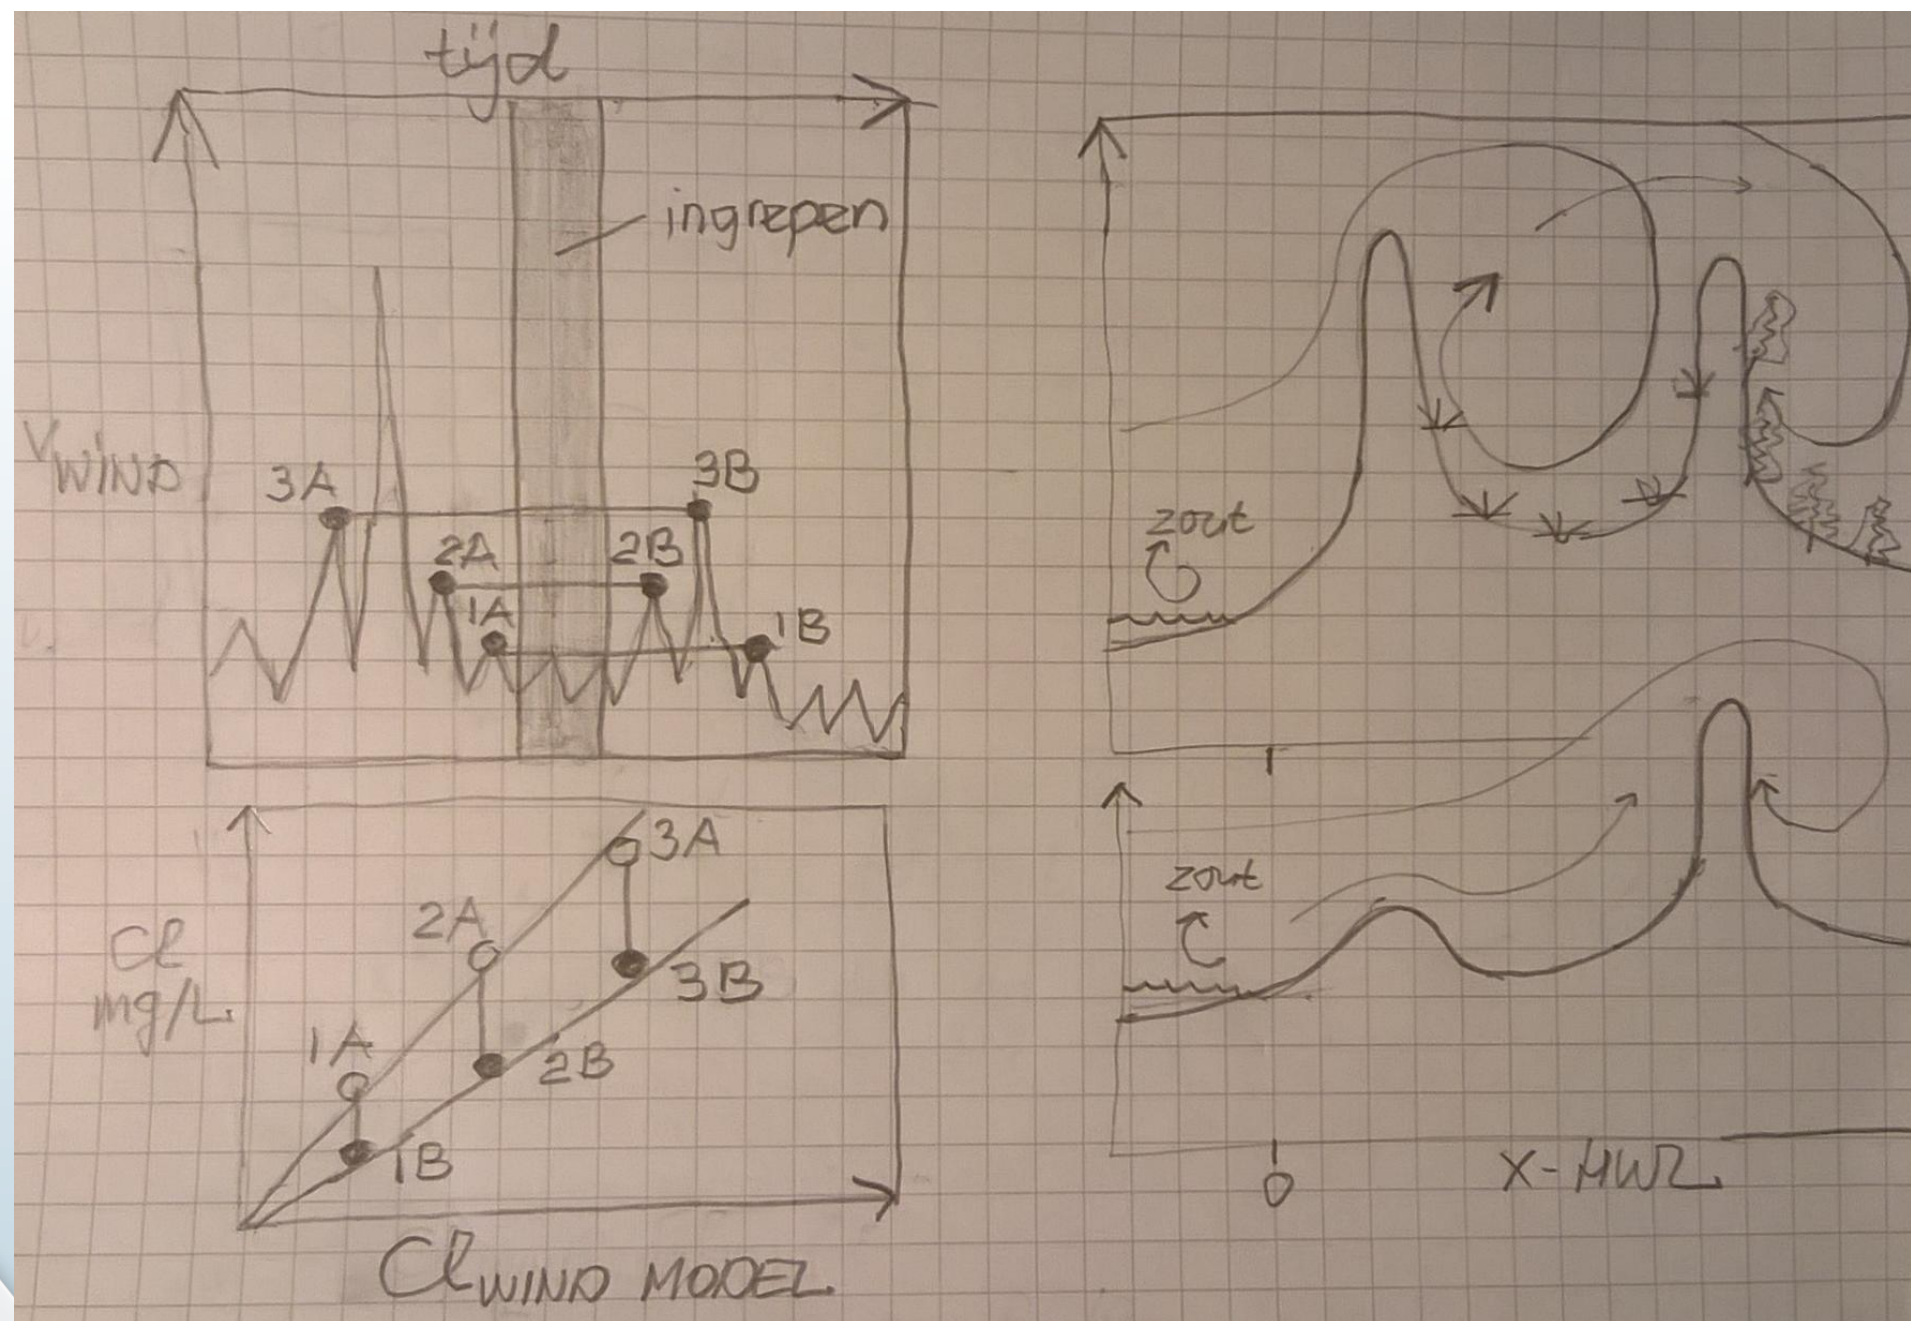 tijd
ingrepen
VWIND
3A
3B
2A
2B
1A
1B
Cl
mg/L
3A
2A
3B
1A
2B
1B
ClWIND MODEL
zout
zout
0
X-HWL